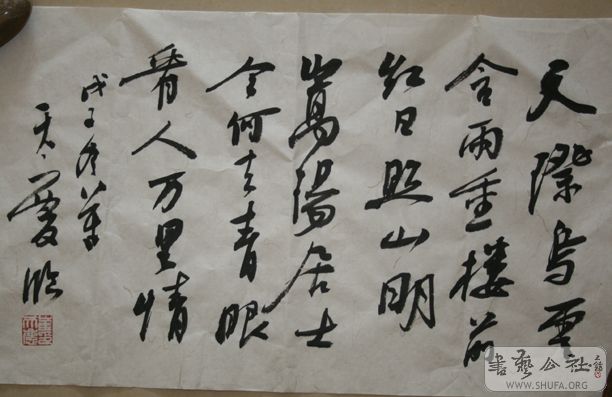 天際烏雲
含雨重樓前
紅日照山明
嵩陽居士
今何在青眼
看人万里情
戊子
臨
書藝公社
WWW.SHUFA.ORG